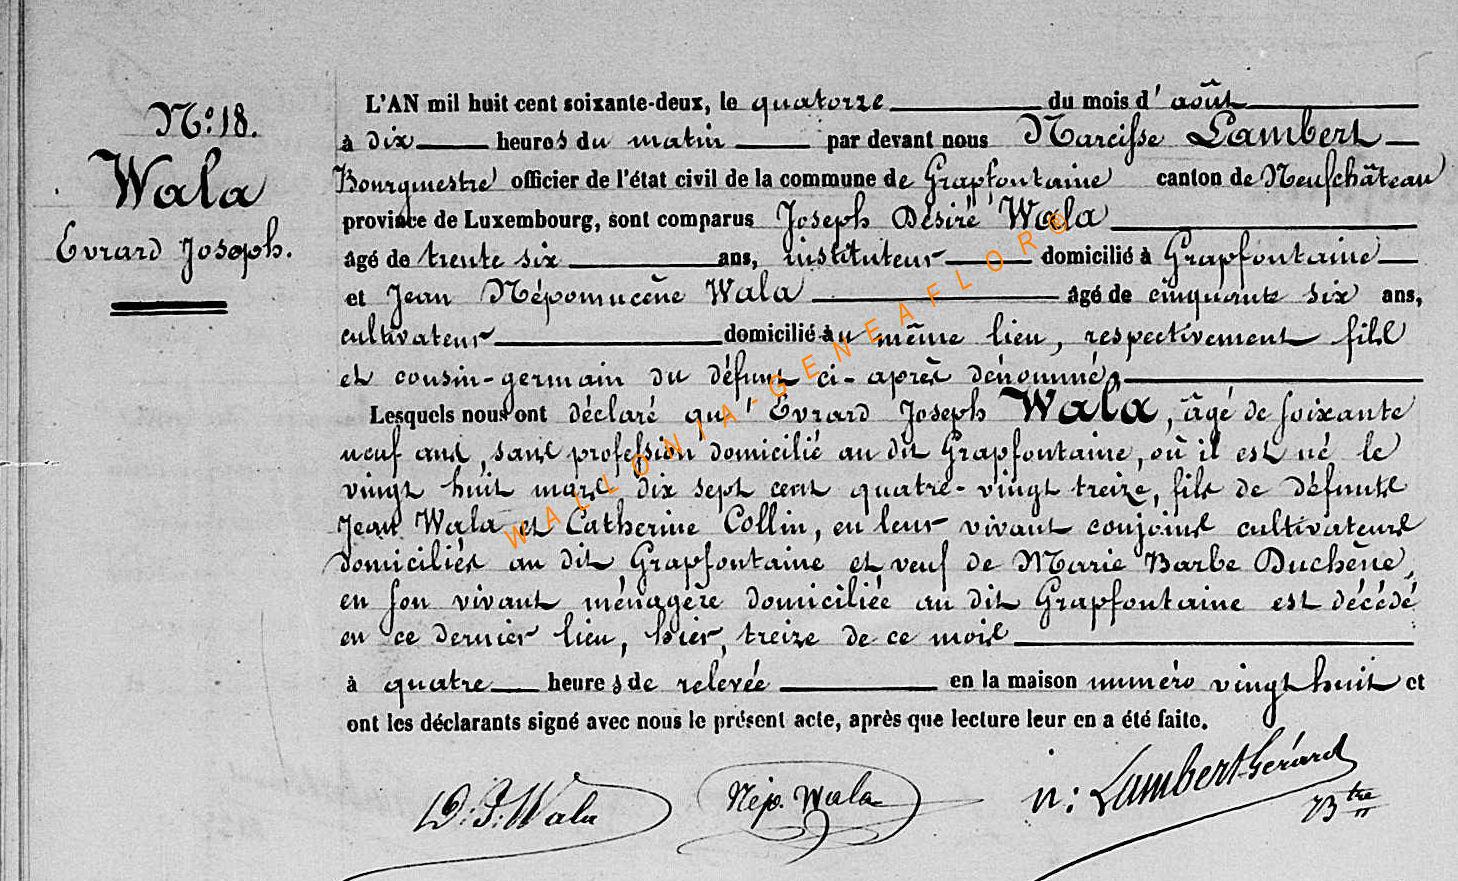 N.o 18.
Wala
Evrard Joseph.
L'AN mil huit cent soixante-deux, le quatorze du mois d'août
à dix heures du matin par devant nous Narcisse Lambert
Bourgmestre officier de l'état civil de la commune de Grapfontaine canton de Neufchâteau
province de Luxembourg, sont comparus Joseph Désiré Wala
âgé de trente six ans, instituteur domicilié à Grapfontaine
et Jean Népomucène Wala âgé de cinquante six ans,
cultivateur domicilié au même lieu, respectivement fils
et cousin-germain du défunt ci-après dénommé,
Lesquels nous ont déclaré qu'Evrard Joseph Wala, âgé de soixante
neuf ans, sans profession domicilié au dit Grapfontaine, où il est né le
vingt huit mars dix sept cent quatre-vingt treize, fils de défunts
Jean Wala et Catherine Collin, en leur vivant conjoints cultivateurs
domiciliés au dit Grapfontaine et veuf de Marie Barbe Duchêne,
en son vivant ménagère domiciliée au dit Grapfontaine est décédé
en ce dernier lieu, hier, treize de ce mois
à quatre heures de relevée en la maison numéro vingt huit et
ont les déclarants signé avec nous le présent acte, après que lecture leur en a été faite.
D: J: Wala Nép. Wala n: Lambert Gérard
Btre
WALLONIA-GENEAFLOR©